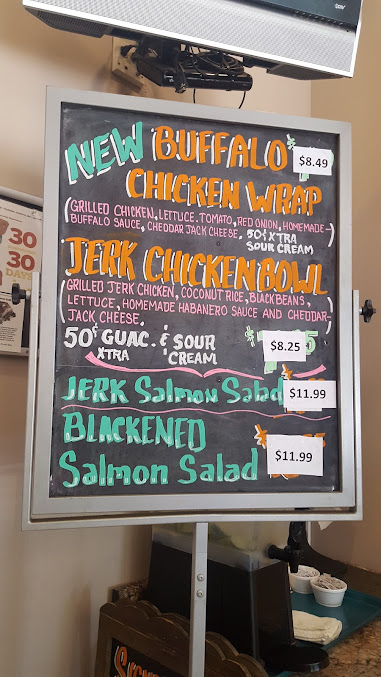 NEW BUFFALO $8.49
CHICKEN WRAP
(GRILLED CHICKEN, LETTUCE, TOMATO, RED ONION, HOMEMADE-
BUFFALO SAUCE, CHEDDAR JACK CHEESE. 50¢ XTRA
SOUR CREAM)
JERK CHICKEN BOWL
(GRILLED JERK CHICKEN, COCONUT RICE, BLACK BEANS,
LETTUCE, HOMEMADE HABANERO SAUCE AND CHEDDAR-
JACK CHEESE.)
50¢ GUAC. & SOUR $8.25
XTRA CREAM
JERK Salmon Salad $11.99
BLACKENED
Salmon Salad $11.99
30
30
DAYS